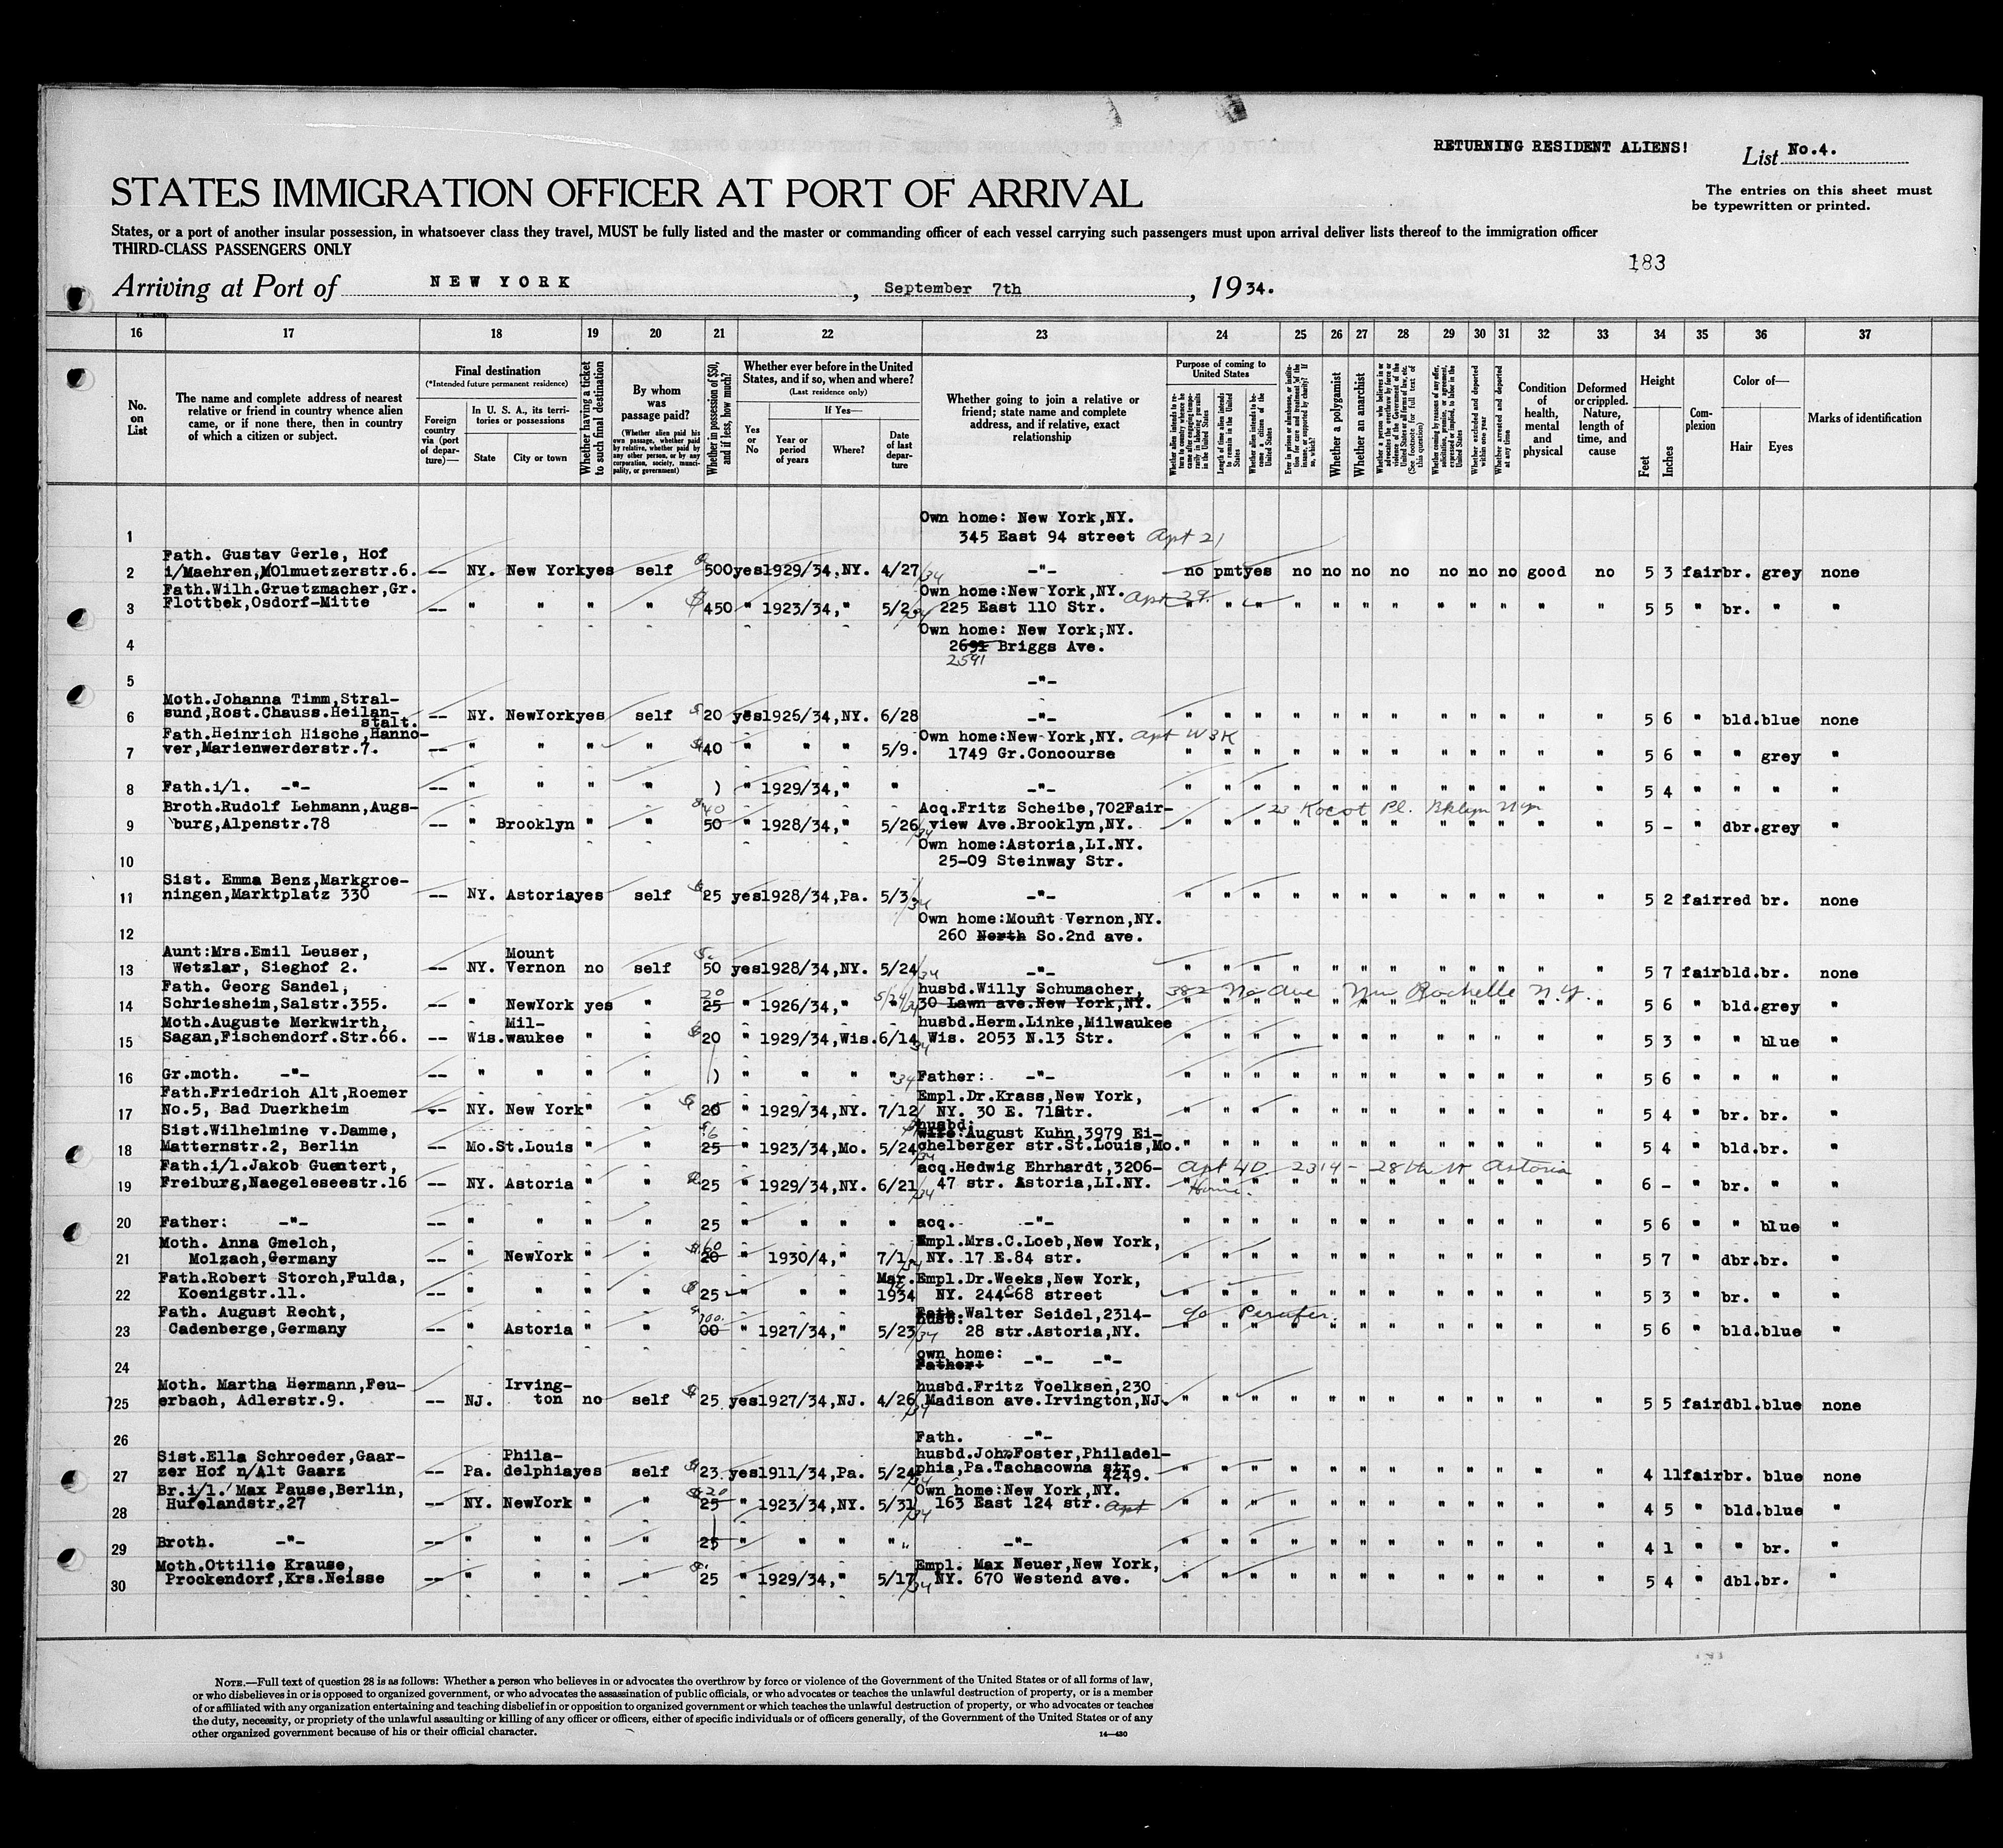 RETURNING RESIDENT ALIENS!
List No.4.
STATES IMMIGRATION OFFICER AT PORT OF ARRIVAL
The entries on this sheet must
be typewritten or printed.
States, or a port of another insular possession, in whatsoever class they travel, MUST be fully listed and the master or commanding officer of each vessel carrying such passengers must upon arrival deliver lists thereof to the immigration officer
THIRD-CLASS PASSENGERS ONLY
183
Arriving at Port of NEW YORK, September 7th, 1934.
16 17 18 19 20 21 22 23 24 25 26 27 28 29 30 31 32 33 34 35 36 37
No. on List
The name and complete address of nearest relative or friend in country whence alien came, or if none there, then in country of which a citizen or subject.
Final destination
(*Intended future permanent residence)
Foreign country via (port of departure)—
In U. S. A., its territories or possessions
State
City or town
Whether having a ticket to such final destination
By whom was passage paid?
(Whether alien paid his own passage, whether paid by relative, whether paid by any other person, or by any corporation, society, municipality, or government)
Whether in possession of $50, and if less, how much?
Whether ever before in the United States, and if so, when and where?
(Last residence only)
Yes or No
If Yes—
Year or period of years
Where?
Date of last departure
Whether going to join a relative or friend; state name and complete address, and if relative, exact relationship
Purpose of coming to United States
Length of time alien intends to remain in the United States
Whether alien intends to become a citizen of the United States
Whether a polygamist
Whether an anarchist
Whether excluded and deported within one year
Whether arrested and deported at any time
Condition of health, mental and physical
Deformed or crippled. Nature, length of time, and cause
Height
Feet
Inches
Complexion
Color of—
Hair
Eyes
Marks of identification
1 Own home: New York,NY.
345 East 94 street Apt 21
2 Fath. Gustav Gerle, Hof
i/Maehren, Olmuetzerstr.6. -- NY. New York yes self $ 500 yes 1929/34,NY. 4/27/34 -"- no pmt yes no no no no no no no good no 5 3 fair br. grey none
3 Fath.Wilh.Gruetzmacher,Gr. Own home:New York,NY. Apt 29.
Flottbek,Osdorf-Mitte -- " " " " $ 450 " 1923/34," 5/2./34 225 East 110 Str. " " " " " " " " " " " " 5 5 " br. " "
4 Own home: New York,NY.
2691 Briggs Ave.
2591
5 -"-
6 Moth.Johanna Timm,Stral-
sund,Rost.Chauss.Heilan-
stalt. -- NY. NewYork yes self $ 20 yes 1926/34,NY. 6/28 -"- " " " " " " " " " " " " 5 6 " bld. blue none
7 Fath.Heinrich Hische,Hanno- Own home:New York,NY. Apt W 3K
ver,Marienwerderstr.7. -- " " " " $ 40 " " " 5/9. 1749 Gr.Concourse " " " " " " " " " " " " 5 6 " " grey "
8 Fath.i/l. -"- -- " " " " ) " 1929/34," " -"- " " " " " " " " " " " " 5 4 " " " "
9 Broth.Rudolf Lehmann,Augs- $ 40 Acq.Fritz Scheibe,702Fair- 23 Kocot Pl. Bklyn
burg,Alpenstr.78 -- " Brooklyn " " 50 " 1928/34," 5/26/34 view Ave.Brooklyn,NY. " " " " " " " " " " " " 5 - " dbr. grey "
10 Own home:Astoria,LI.NY.
25-09 Steinway Str.
11 Sist. Emma Benz,Markgroe-
ningen,Marktplatz 330 -- NY. Astoria yes self $ 25 yes 1928/34,Pa. 5/3/34 -"- " " " " " " " " " " " " 5 2 fair red br. none
12 Own home:Mount Vernon,NY.
260 North So.2nd ave.
13 Aunt:Mrs.Emil Leuser, Mount
Wetzlar, Sieghof 2. -- NY. Vernon no self 50 yes 1928/34,NY. 5/24/34 -"- " " " " " " " " " " " " 5 7 fair bld. br. none
14 Fath. Georg Sandel, 20 husbd.Willy Schumacher, 382 No Ave New Rochelle N.Y.
Schriesheim,Salstr.355. -- " NewYork yes " 25 " 1926/34," 5/24/34 30 Lawn ave.New York,NY. " " " " " " " " " " " " 5 6 " bld. grey "
15 Moth.Auguste Merkwirth, Mil- husbd.Herm.Linke,Milwaukee
Sagan,Fischendorf.Str.66. -- Wis. waukee " " $ 20 " 1929/34,Wis. 6/14/34 Wis. 2053 N.13 Str. " " " " " " " " " " " " 5 3 " " blue "
16 Gr.moth. -"- -- " " " " ) " " " "34 Father: -"- " " " " " " " " " " " " 5 6 " " " "
17 Fath.Friedrich Alt,Roemer Empl.Dr.Krass,New York,
No.5, Bad Duerkheim -- NY. New York " " $ 20 " 1929/34,NY. 7/12/ NY. 30 E. 71Str. " " " " " " " " " " " " 5 4 " br. br. "
18 Sist.Wilhelmine v.Damme, husbd:
wife:August Kuhn,3979 Ei-
Matternstr.2, Berlin -- Mo. St.Louis " " 25 " 1923/34,Mo. 5/24/34 chelberger str.St.Louis,Mo. " " " " " " " " " " " " 5 4 " bld. br. "
19 Fath.i/l.Jakob Guentert, acq.Hedwig Ehrhardt,3206- Apt 4D 2314 - 28th St Astoria
Freiburg,Naegeleseestr.16 -- NY. Astoria " " $ 25 " 1929/34,NY. 6/21/34 47 str. Astoria,LI.NY. Home. " " " " " " " " " " " 6 - " br. " "
20 Father: -"- -- " " " " 25 " " " " acq. -"- " " " " " " " " " " " " 5 6 " " blue "
21 Moth. Anna Gmelch, $ 60 Empl.Mrs.C.Loeb,New York,
Molzach,Germany -- " NewYork " " 20 " 1930/4," 7/1./34 NY. 17 E.84 str. " " " " " " " " " " " " 5 7 " dbr. br. "
22 Fath.Robert Storch,Fulda, Mar. Empl.Dr.Weeks,New York,
Koenigstr.11. -- " " " " $ 25 " " " 1934 NY. 244 E 68 street " " " " " " " " " " " " 5 3 " br. " "
23 Fath. August Recht, 100. Walter Seidel,2314- c/o
Cadenberge,Germany -- " Astoria " " 00 " 1927/34," 5/23/34 28 str.Astoria,NY. " " " " " " " " " " " " 5 6 " bld. blue "
24 own home:
Father: -"- -"-
25 Moth. Martha Hermann,Feu- Irving- husbd.Fritz Voelksen,230
erbach, Adlerstr.9. -- NJ. ton no self $ 25 yes 1927/34,NJ. 4/26/34 Madison ave.Irvington,NJ. " " " " " " " " " " " " 5 5 fair dbl. blue none
26 Fath. -"-
27 Sist.Ella Schroeder,Gaar- Phila- husbd.John Foster,Philadel-
zer Hof n/Alt Gaarz -- Pa. delphia yes self $ 23. yes 1911/34,Pa. 5/24/34 phia,Pa.Tachacowna str.
4249. " " " " " " " " " " " " 4 11 fair br. blue none
28 Br.i/l. Max Pause,Berlin, $ 20 Own home:New York,NY.
Hufelandstr.27 -- NY. NewYork " " 25 " 1923/34,NY. 5/31/34 163 East 124 str. Apt " " " " " " " " " " " " 4 5 " bld. blue "
29 Broth. -"- -- " " " " 25 " " " " -"- " " " " " " " " " " " " 4 1 " " br. "
30 Moth.Ottilie Krause, Empl. Max Neuer,New York,
Prockendorf,Krs.Neisse -- " " " " 25 " 1929/34," 5/17/34 NY. 670 Westend ave. " " " " " " " " " " " " 5 4 " dbl. br. "
NOTE.—Full text of question 28 is as follows: Whether a person who believes in or advocates the overthrow by force or violence of the Government of the United States or of all forms of law,
or who disbelieves in or is opposed to organized government, or who advocates the assassination of public officials, or who advocates or teaches the unlawful destruction of property, or is a member
of or affiliated with any organization entertaining and teaching disbelief in or opposition to organized government or which teaches the unlawful destruction of property, or who advocates or teaches
the duty, necessity, or propriety of the unlawful assaulting or killing of any officer or officers, either of specific individuals or of officers generally, of the Government of the United States or of any
other organized government because of his or their official character.
14—430